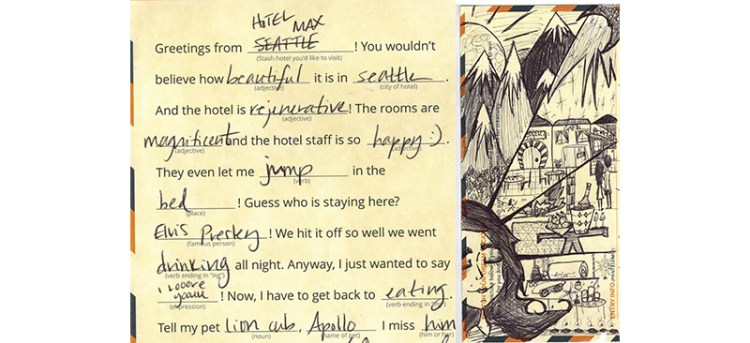 HOTEL MAX
Greetings from SEATTLE ! You wouldn't
(Stash hotel you'd like to visit)
believe how beautiful it is in seattle .
(adjective) (city of hotel)
And the hotel is rejenerative! The rooms are
(adjective)
magnificent and the hotel staff is so happy :).
(adjective) (adjective)
They even let me jump in the
(verb)
bed ! Guess who is staying here?
(place)
Elvis Presley! We hit it off so well we went
(famous person)
drinking all night. Anyway, I just wanted to say
(verb ending in "ing")
! Now, I have to get back to eating.
(expression) (verb ending in "ing")
Tell my pet Lion cub, Apollo I miss him
(noun) (name of pet) (him or her)
ENTRY INFO